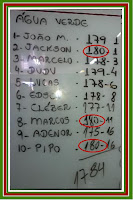 ÁGUA VERDE
1- JOÃO M. - 179 - 1
2- JACKSON - 180 - 1
3- MARCELO - 178 - 3
4- DUDU - 179 - 4
5- LUCAS - 178 - 6
6- EDSU - 178 - 8
7- CLEZER - 177 - 11
8- MARCOS - 180 - 11
9- ADENOR - 175 - 16
10- PIPO - 180 - 16
1784